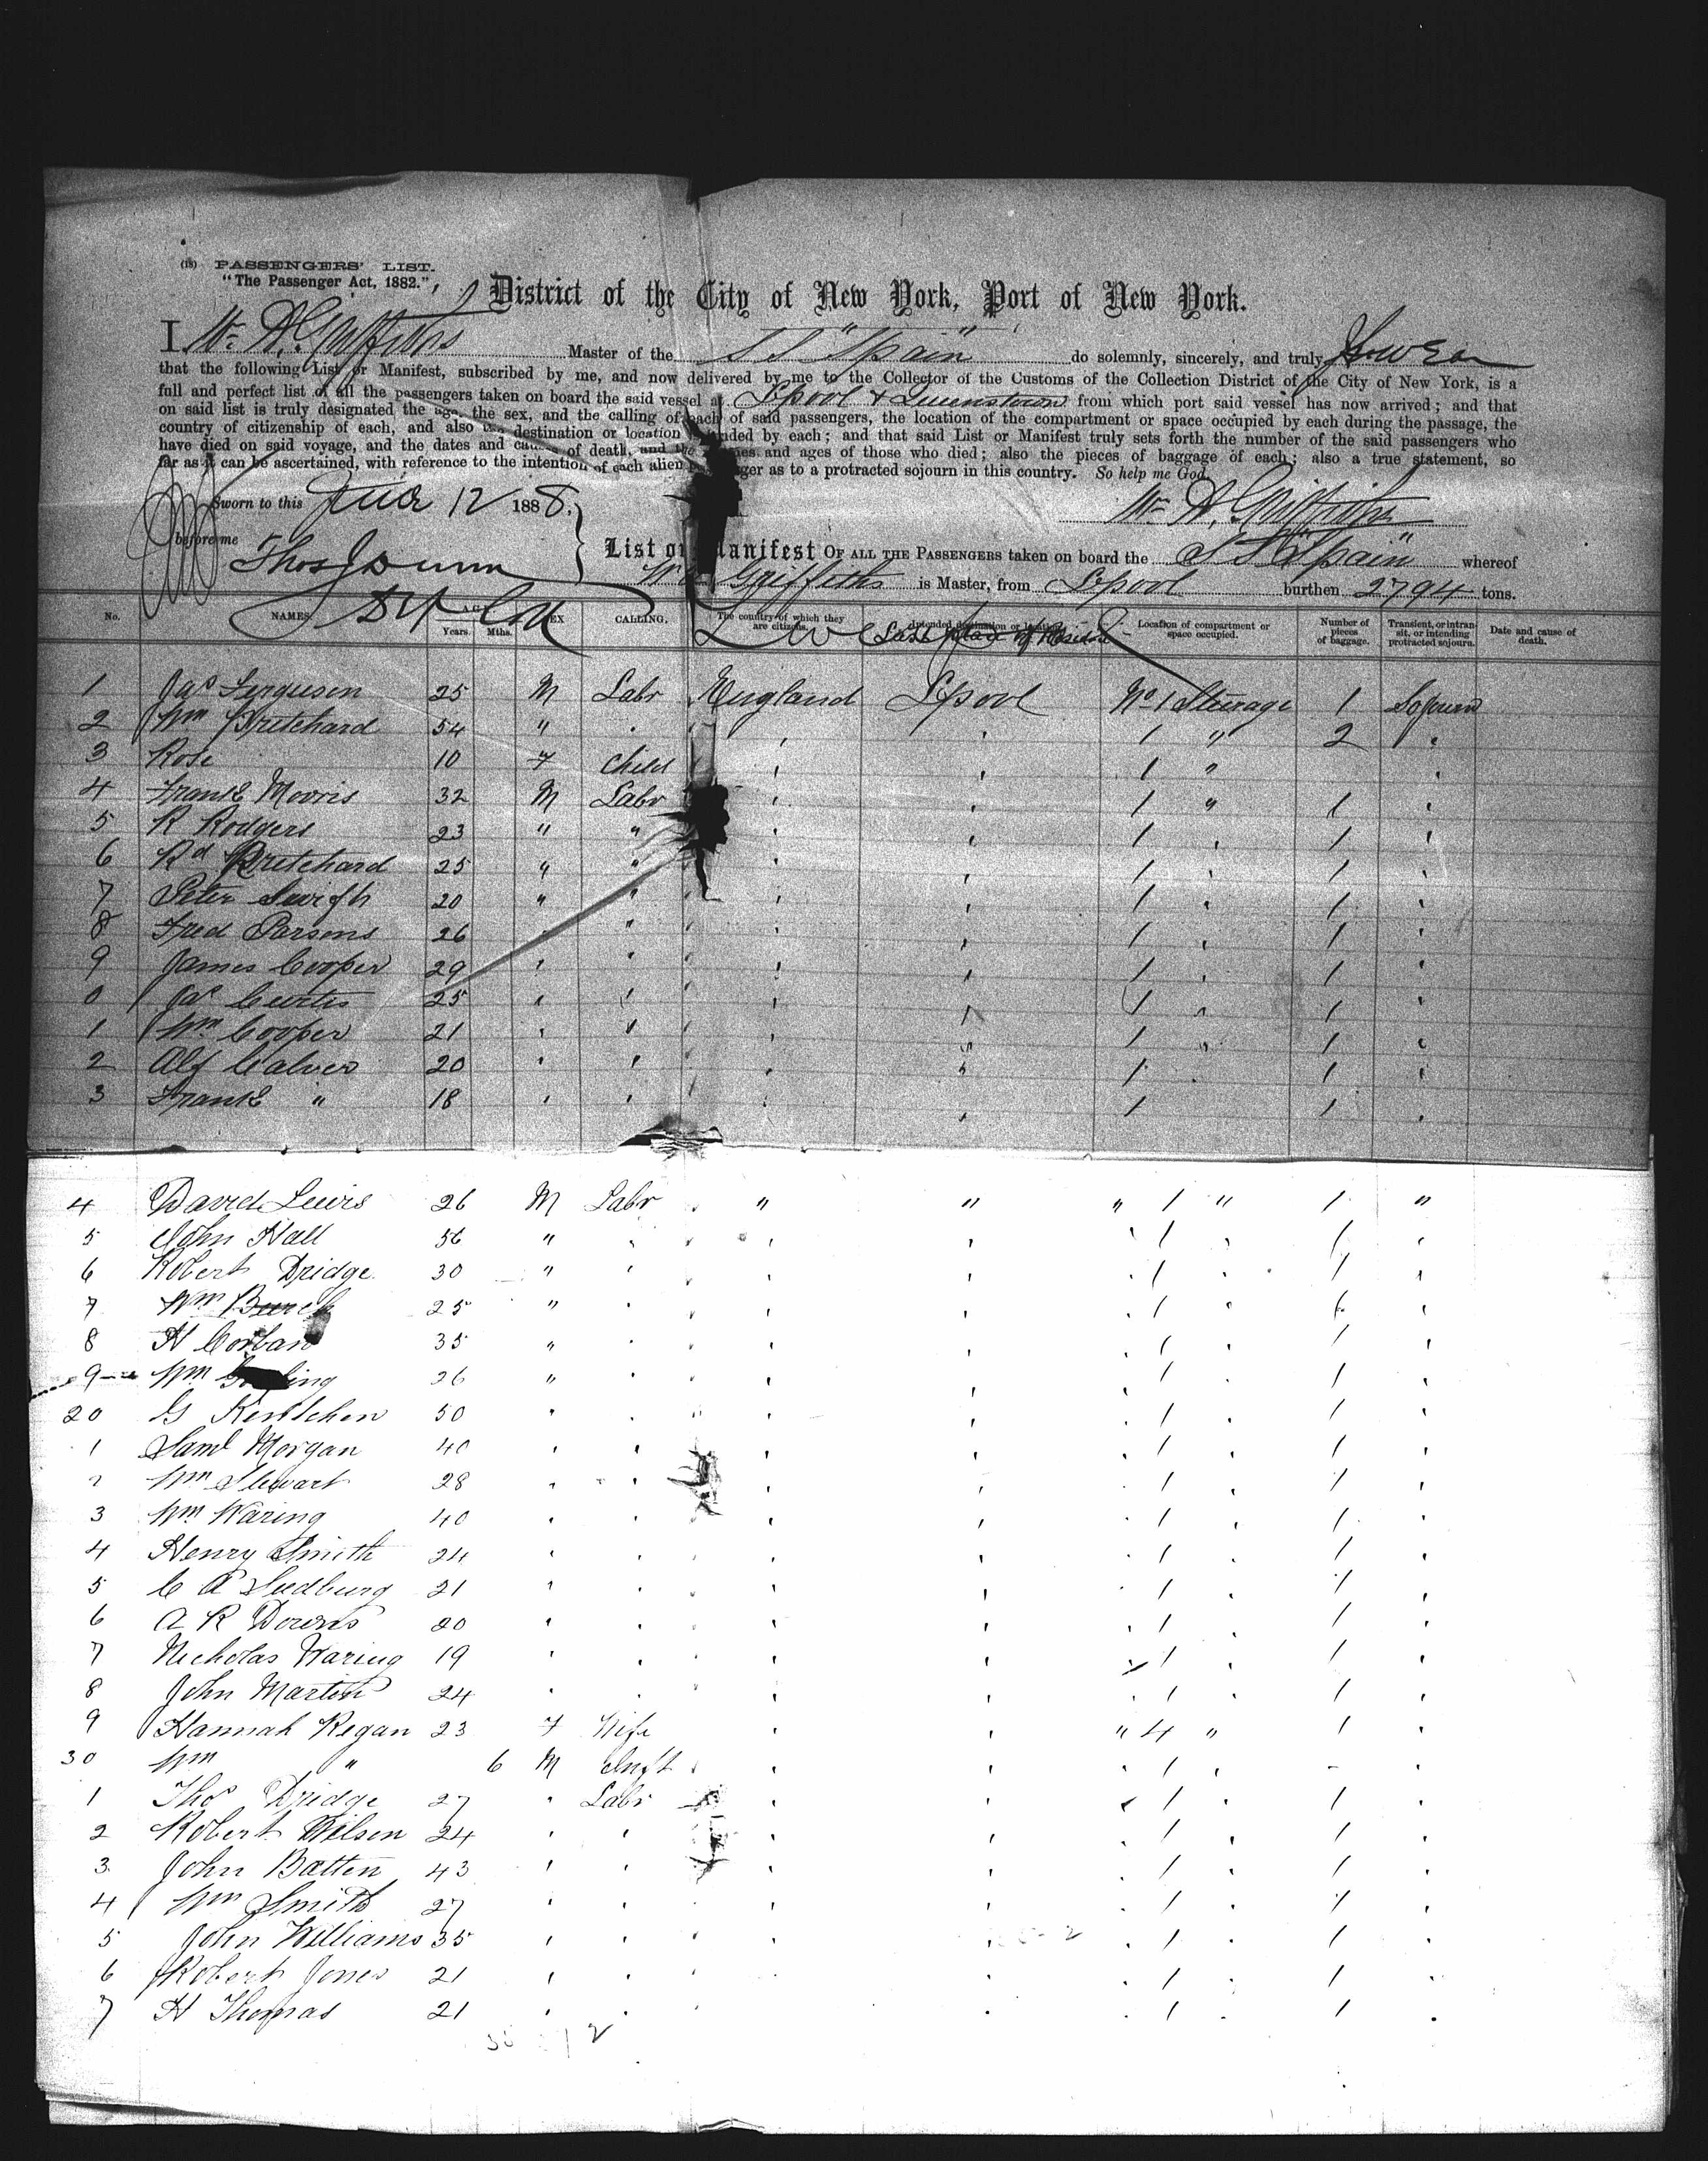 (13) PASSENGERS' LIST.
"The Passenger Act, 1882."
District of the City of New York, Port of New York.
I, Wm A. Griffiths Master of the SS "Spain" do solemnly, sincerely, and truly Swear
that the following List or Manifest, subscribed by me, and now delivered by me to the Collector of the Customs of the Collection District of the City of New York, is a
full and perfect list of all the passengers taken on board the said vessel at Lpool & Queenstown from which port said vessel has now arrived; and that
on said list is truly designated the age, the sex, and the calling of each of said passengers, the location of the compartment or space occupied by each during the passage, the
country of citizenship of each, and also the destination or location intended by each; and that said List or Manifest truly sets forth the number of the said passengers who
have died on said voyage, and the dates and causes of death, and the names and ages of those who died; also the pieces of baggage of each; also a true statement, so
far as it can be ascertained, with reference to the intention of each alien passenger as to a protracted sojourn in this country. So help me God.
Sworn to this 12 1888, Wm A. Griffiths
before me Thos J Dunn
List or Manifest OF ALL THE PASSENGERS taken on board the SS "Spain" whereof
Griffiths is Master, from Lpool burthen 2794 tons.
No. NAMES. AGE Years. Mths. SEX CALLING. The country of which they are citizens. Intended destination or location Last place of Number of pieces of baggage. Location of compartment or space occupied. Transient, or intransit, or intending protracted sojourn. Date and cause of death.
1 Jas Ferguson 25 M Labr England Lpool No 1 Steerage 1 Sojourn
2 Wm Pritchard 54 " 1 " 2
3 Rose 10 F Child 1 "
4 Frank Morris 32 M Labr 1 " 1
5 R Rodgers 23 " " 1 1
6 Rd Pritchard 25 " " 1 1
7 Peter Swift 20 " " 1 1
8 Fred Parsons 26 " " 1 1
9 James Cooper 29 " " 1 1
0 Jas Curtis 25 " " 1 1
1 Wm Cooper 21 " " 1 1
2 Alf Calver 20 " " 1 1
3 Frank " 18 " " 1 1
4 David Lewis 26 M Labr " " " 1 " 1 "
5 John Hall 56 " 1 1
6 Robert Dridge 30 " 1 1
7 Wm 25 " 1 1
8 H Corban 35 " 1 1
9 Wm 26 " 1 1
20 G 50 " 1 1
1 Saml Morgan 40 " 1 1
2 Wm Stewart 28 " 1 1
3 Wm Waring 40 " 1 1
4 Henry Smith 24 " 1 1
5 C A Sudburg 21 " 1 1
6 A R Downs 20 " 1 1
7 Nicholas Waring 19 " 1 1
8 John Martin 24 " 1 1
9 Hannah Regan 23 F Wife " 4 " 1
30 Wm " 6 M Inft 1 -
1 Thos Dridge 27 " Labr 1 1
2 Robert Wilson 24 " " 1 1
3 John Batten 43 " " 1 1
4 Wm Smith 27 " " 1 1
5 John Williams 35 " " 1 1
6 Robert Jones 21 " " 1 1
7 H Thomas 21 " " 1 1